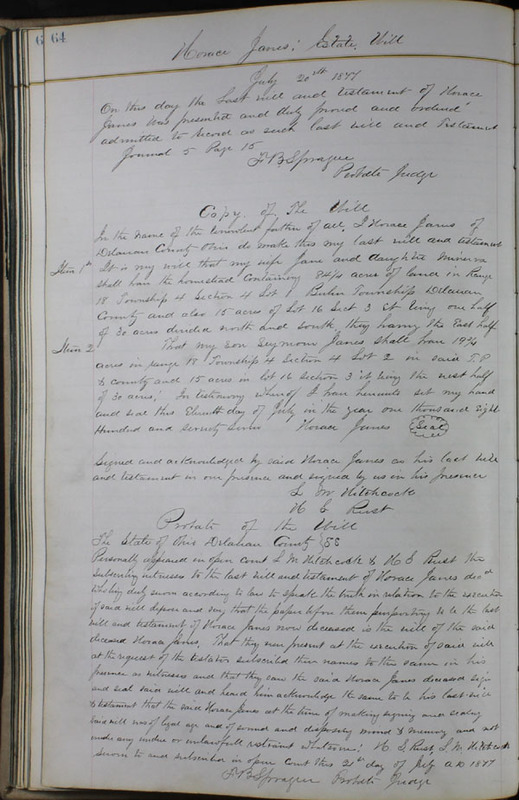 6 64
Horace Janes' Estate, Will
July 20th 1877
On this day the Last will and testament of Horace
Janes was presented and duly proved and ordered
admitted to record as such last will and Testament
Journal 5 Page 15
F B Sprague
Probate Judge
Copy of The Will
In the name of the benevolent father of all, I Horace Janes of
Delaware County Ohio do make this my last will and testament
Item 1st It is my will that my wife Jane and daughter Minerva
shall have the homestead containing 84 acres of land in Range
18 Township 4 Section 4 Lot 1 Berlin Township Delaware
County and also 15 acres of Lot 16 Sect 3 it being one half
of 30 acres divided north and south they having the East half
Item 2 That my son Seymour Janes shall have 19 3/4
acres in range 18 Township 4 Section 4 Lot 2 in said T.P
& county and 15 acres in lot 16 section 3 it being the west half
of 30 acres; In testimony whereof I have hereunto set my hand
and seal this Eleventh day of July in the year one thousand Eight
Hundred and seventy seven Horace Janes Seal
Signed and acknowledged by said Horace Janes as his last will
and testament in our presence and signed by us in his presence
L M Hitchcock
H E Rust
Probate of the Will
The State of Ohio Delaware County SS
Personally appeared in open court L M Hitchcock & H E Rust the
subscribing witnesses to the last will and testament of Horace Janes decd
who being duly sworn according to law to speak the truth in relation to the execution
of said will depose and say, that the paper before them purporting to be the last
will and testament of Horace Janes now deceased is the will of the said
deceased Horace Janes, That they were present at the execution of said will
at the request of the testator subscribed their names to the same in his
presence as witnesses and that they saw the said Horace Janes deceased sign
and seal said will and heard him acknowledge the same to be his last will
& testament that the said Horace Janes at the time of making signing and sealing
said will was of legal age and of sound and disposing mind & memory and not
under any undue or unlawful restraint whatsoever; H E Rust, L M Hitchcock
Sworn to and subscribed in open court this 21st day of July A.D 1877
F B Sprague Probate Judge